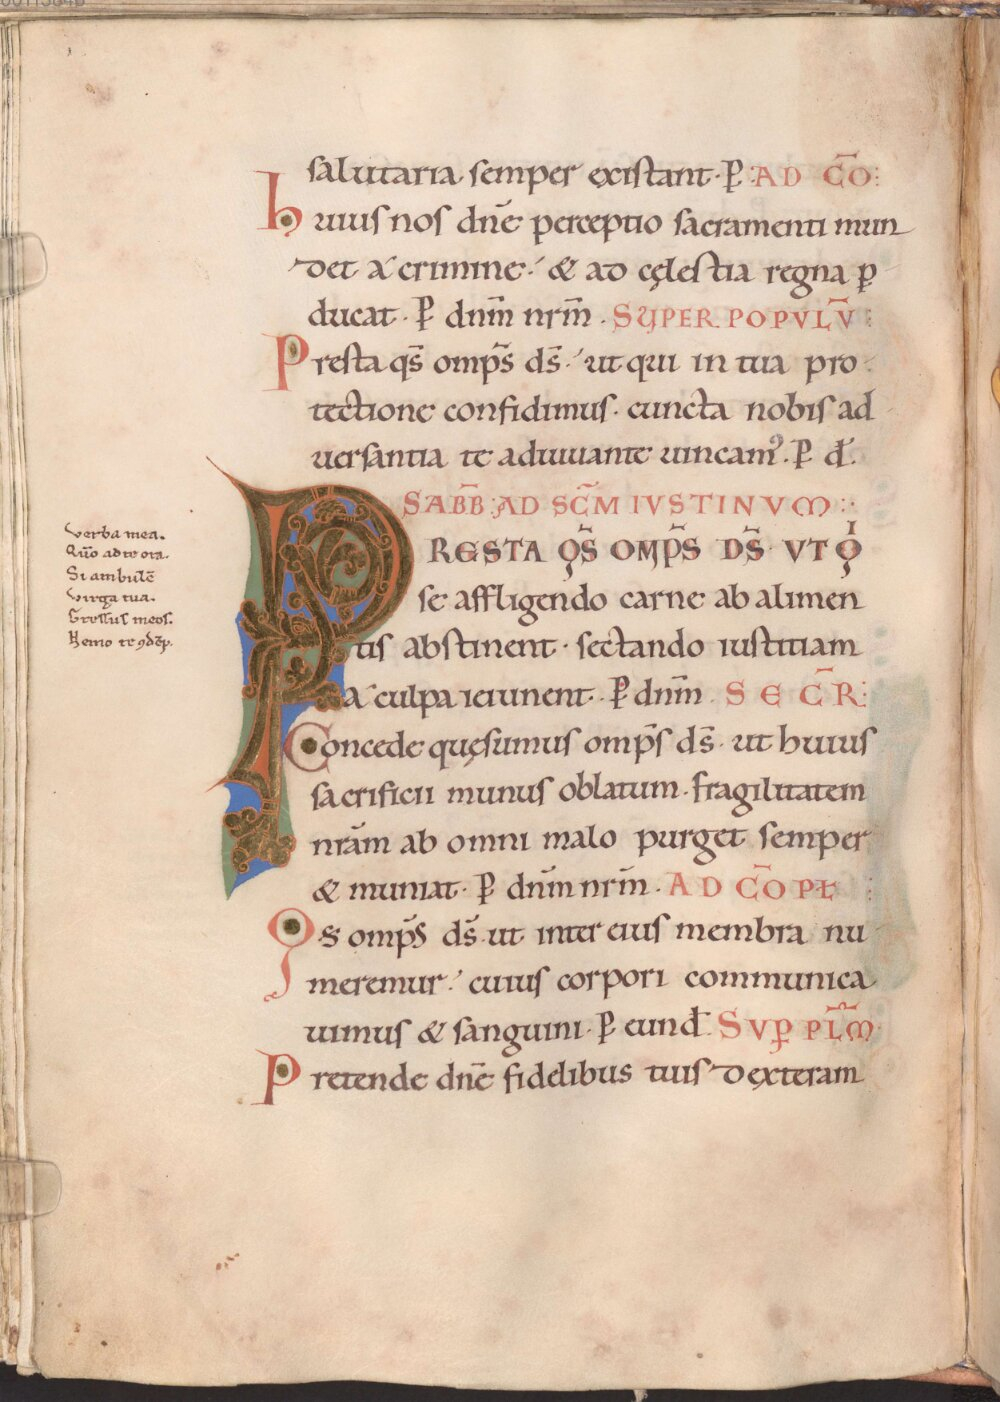 salutaria semper existant· P̄ AD C̄O:
huius nos dn̄e perceptio sacramenti mun
det a crimine·´ & ad cęlestia regna ꝑ
ducat· P̄ dnm̄ nrm̄· SUPER POPVLV̄:
Presta qs̄ omp̄s ds̄·´ ut qui in tua pro
tectione confidimus· cuncta nobis ad
uersantia te adiuuante uincamꝰ· P̄ d̄·
SABB̄ AD SC̄M IVSTINVM:·
PRESTA QS̄ OMP̄S DS̄ VT QI
se affligendo carne ab alimen
tis abstinent· sectando iustitiam
a culpa ieiunent· P̄ dnm̄ SEC̄R:
Concede quęsumus omp̄s ds̄· ut huius
sacrificii munus oblatum· fragilitatem
nrām ab omni malo purget semper
& muniat· P̄ dnm̄ nrm̄· AD C̄O PŁ:
Qs omp̄s ds̄ ut inter eius membra nu
meremur·´ cuius corpori communica
uimus & sanguini· P̄ eund̄ SVꝐ PLM̄
Pretende dn̄e fidelibus tuis dexteram
Verba mea.
Qūo ad te ora.
Si ambulē
Virga tua.
Gressus meos.
Nemo te ꝯdēp.